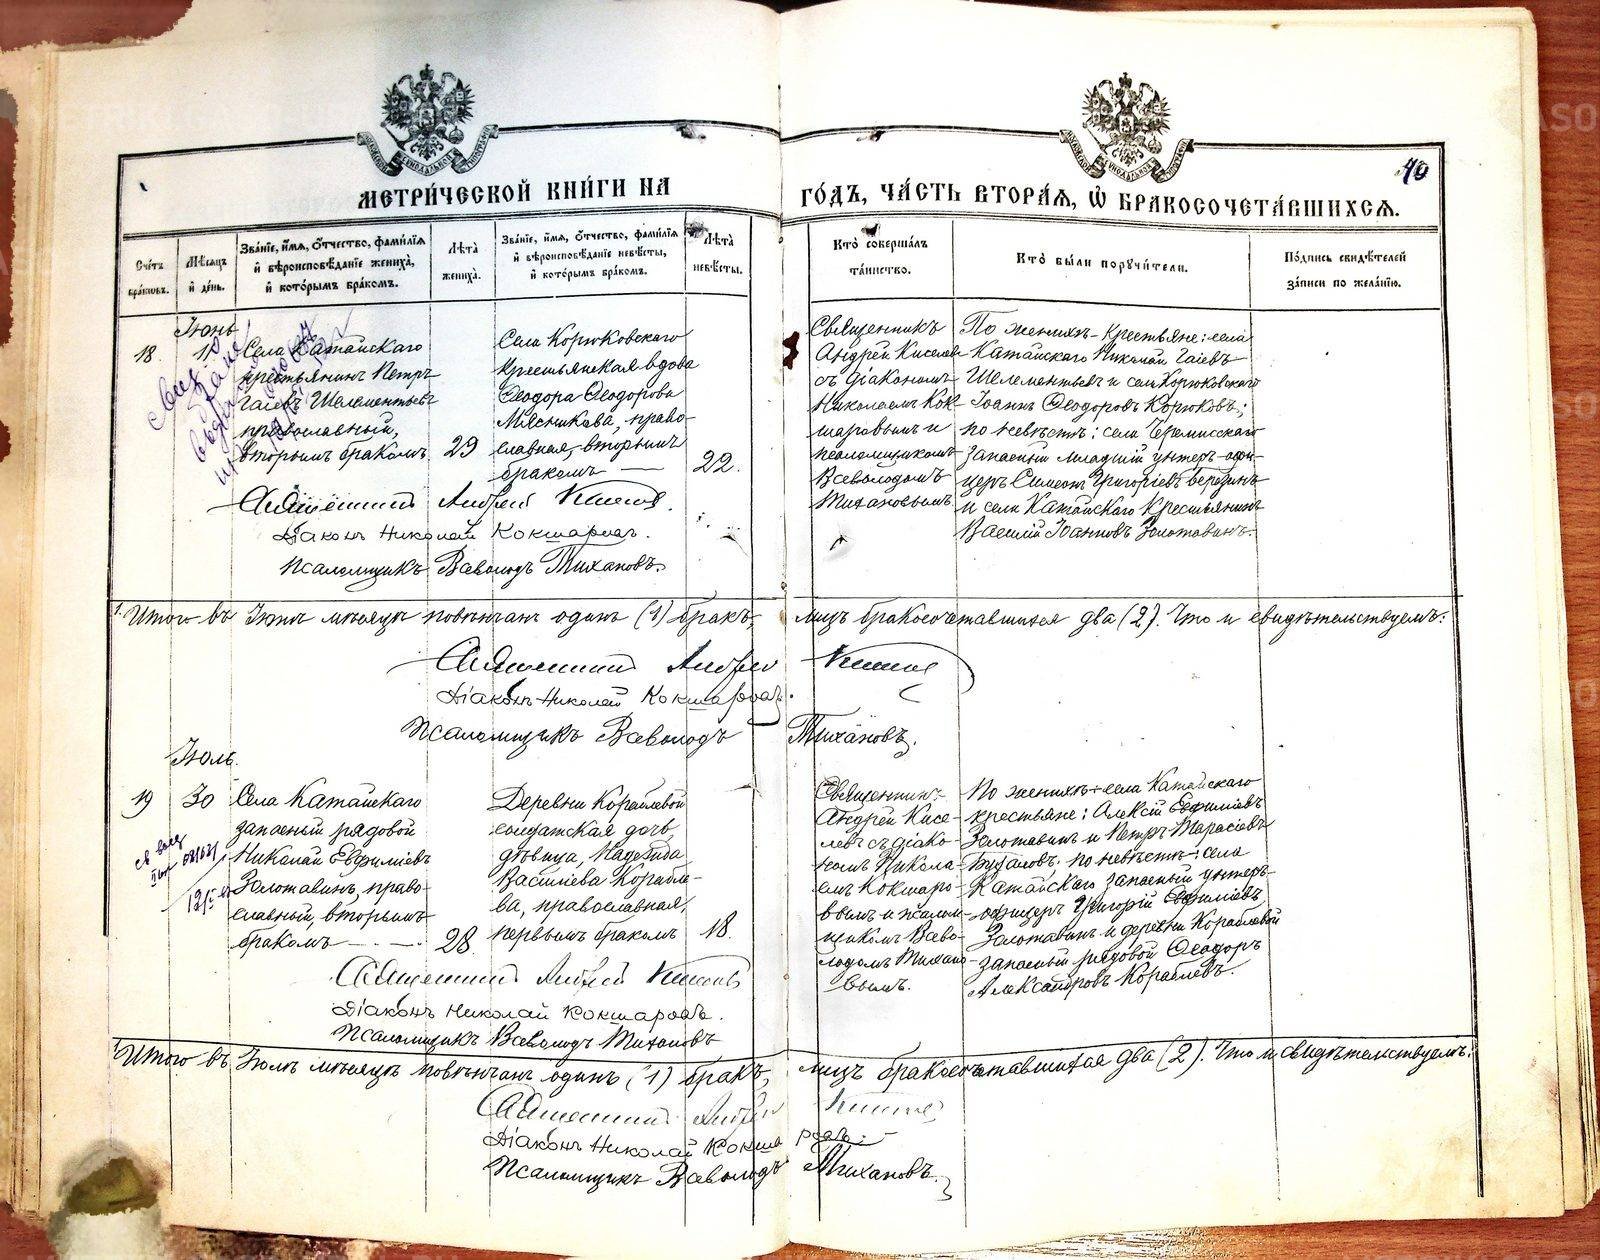 МЕТРИ́ЧЕСКОЙ КНИ́ГИ НА ГО́ДЪ, ЧА́СТЬ ВТОРА́Я, Ѡ БРАКОСОЧЕТА́ВШИХСЯ.
40
Сче́тъ бра́ковъ.
Мѣ́сяцъ и де́нь.
Зва́нїе, и́мя, о́тчество, фами́лїя и вѣроисповѣ́данїе жениха́, и кото́рымъ бра́комъ.
Лѣта̀ жениха̀.
Зва́нїе, и́мя, о́тчество, фами́лїя и вѣроисповѣ́данїе невѣ́сты, и кото́рымъ бра́комъ.
Лѣта̀ невѣ́сты.
Кто̀ соверша́лъ та́инство.
Кто̀ бы́ли поручи́тели.
По́дпись свидѣ́телей за́писи по жела́нїю.
Іюнь
18. 11
Села Катайскаго
крестьянинъ Петръ
Гаіевъ Шелементьевъ
православный,
вторымъ бракомъ
29
Села Корюковскаго
крестьянская вдова
Ѳеодора Ѳеодорова
Мясникова, право-
славная, вторымъ
бракомъ —
22.
Священникъ
Андрей Киселевъ
съ діакономъ
Николаемъ Кок-
шаровымъ и
псаломщикомъ
Всеволодомъ
Тихановымъ
По женихѣ - крестьяне: села
Катайскаго Николай Гаіевъ
Шелементьевъ и села Корюковскаго
Іоаннъ Ѳеодоровъ Корюковъ;
по невѣстѣ: села Черемисскаго
запасный младшій унтеръ-офи-
церъ Симеонъ Григоріевъ Березинъ
и села Катайскаго крестьянинъ
Василій Іоанновъ Золотавинъ.
Священникъ Андрей Киселевъ
Діаконъ Николай Кокшаровъ.
Псаломщикъ Всеволодъ Тихановъ.
Итого въ Іюнѣ мѣсяцѣ повѣнчанъ одинъ (1) бракъ, лицъ бракосочетавшихся два (2). Что и свидѣтельствуемъ:
Священникъ Андрей Киселевъ
Діаконъ Николай Кокшаровъ.
Псаломщикъ Всеволодъ Тихановъ.
Іюль.
19 30
Села Катайскаго
запасный рядовой
Николай Евфиміевъ
Золотавинъ, право-
славный, вторымъ
бракомъ —
28
Деревни Кораблевой
солдатская дочь,
дѣвица, Надежда
Васильева Корабле-
ва, православная,
первымъ бракомъ
18.
Священникъ
Андрей Кисе-
левъ съ діако-
номъ Никола-
емъ Кокшаро-
вымъ и псалом-
щикомъ Всево-
лодомъ Тихано-
вымъ.
По женихѣ: села Катайскаго
крестьяне: Алексій Евфиміевъ
Золотавинъ и Петръ Тарасіевъ
по невѣстѣ: села
Катайскаго запасный унтеръ-
офицеръ Григорій Евфиміевъ
Золотавинъ и деревни Кораблевой
запасный рядовой Ѳеодоръ
Александровъ Кораблевъ.
Священникъ Андрей Киселевъ
Діаконъ Николай Кокшаровъ.
Псаломщикъ Всеволодъ Тихановъ
Итого въ Іюлѣ мѣсяцѣ повѣнчанъ одинъ (1) бракъ, лицъ бракосочетавшихся два (2). Что и свидѣтельствуемъ:
Священникъ Андрей Киселевъ
Діаконъ Николай Кокшаровъ.
Псаломщикъ Всеволодъ Тихановъ.